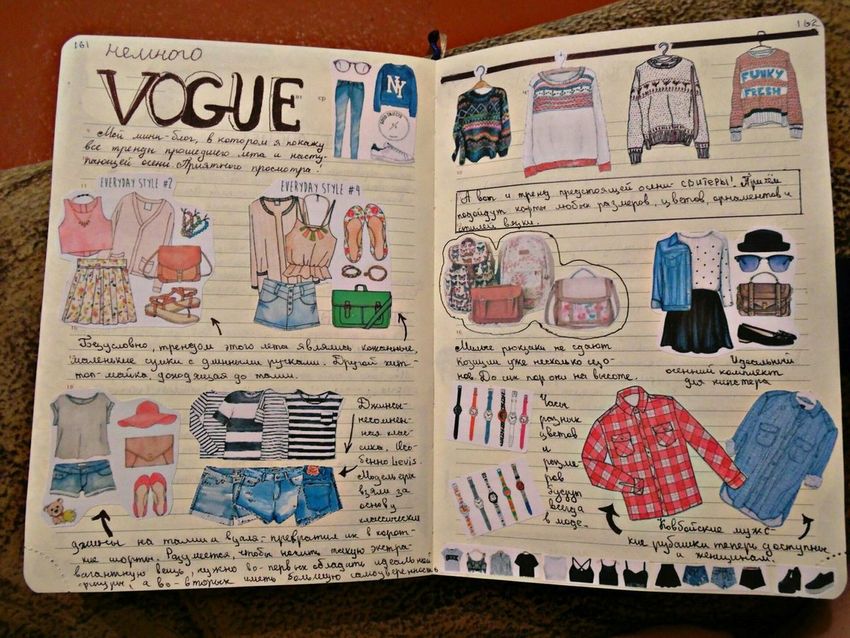 161
немного
VOGUE
Мой мини-блог, в котором я покажу
все тренды прошедшего лета и насту-
пающей осени. Приятного просмотра!
NY
EVERYDAY STYLE #2
EVERYDAY STYLE #4
Безусловно, трендом этого лета являлись кожаные,
маленькие сумки с длинными ручками. Другой хит-
топ-майка, доходящая до талии.
Джинсы-
несомнен-
ная клас-
сика. Осо-
бенно Levis.
Модельеры
взяли за
основу
классические
джинсы на талии и вуаля- превратил их в корот-
кие шорты. Разумеется, чтобы носить такую экстра-
вагантную вещь, нужно во-первых обладать идеальной
а во-вторых иметь большую самоуверенность
162
FUNKY
FRESH
А вот и тренд предстоящей осени- свитеры! Причём
подойдут кофты любых размеров, цветов, орнаментов и
стилей вязки.
Милые рюкзаки не сдают
позиции уже несколько сезо-
нов. До сих пор они на высоте.
Идеальный
осенний комплект
для хипстера
Часы
разных
цветов
и
разме-
ров
будут
всегда
в моде.
Ковбойские мужс-
кие рубашки теперь доступны
и женщинам.